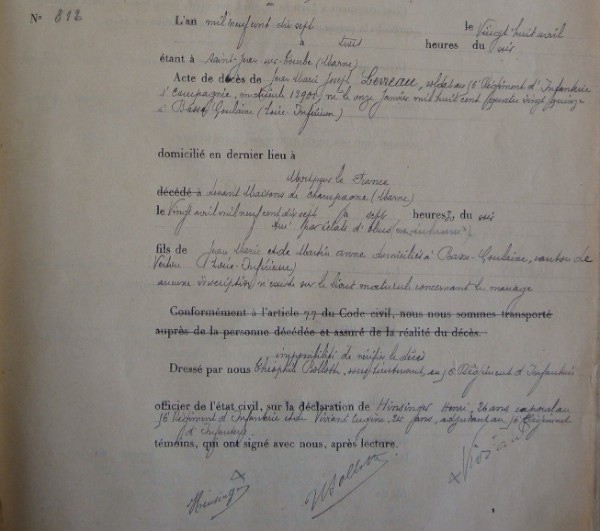 N° 812
L'an mil neuf cent dix sept le Vingt huit avril
à trois heures du soir
étant à Saint-Jean-sur-Tourbe (Marne)
Acte de décès de Jean Marie Joseph Levreau, soldat au 6e Régiment d'Infanterie
Campagnie, matricule 12900, né le onze Janvier mil huit cent quatre vingt quinze
à Basse Goulaine (Loire-Inférieure)
domicilié en dernier lieu à
Mort pour la France
décédé à devant Maisons de Champagne (Marne)
le Vingt avril mil neuf cent dix sept à sept heures du soir
tué par éclats d'obus
fils de Jean Marie et de Martin Anne domiciliés à Basse-Goulaine, canton de
Vertou (Loire-Inférieure)
aucune inscription n'existe sur le livret matricule concernant le mariage
Conformément à l'article 77 du Code civil, nous nous sommes transporté
auprès de la personne décédée et assuré de la réalité du décès.
impossibilité de vérifier le décès
Dressé par nous Théophile Bolloth, sous-lieutenant, au 6e Régiment d'Infanterie
officier de l'état civil, sur la déclaration de Hinsinger Henri, 26 ans caporal au
6e Régiment d'Infanterie et de Viviant Eugène, 25 ans, adjudant au 6e Régiment
d'Infanterie
témoins, qui ont signé avec nous, après lecture.
Hinsinger Bolloth Viviant